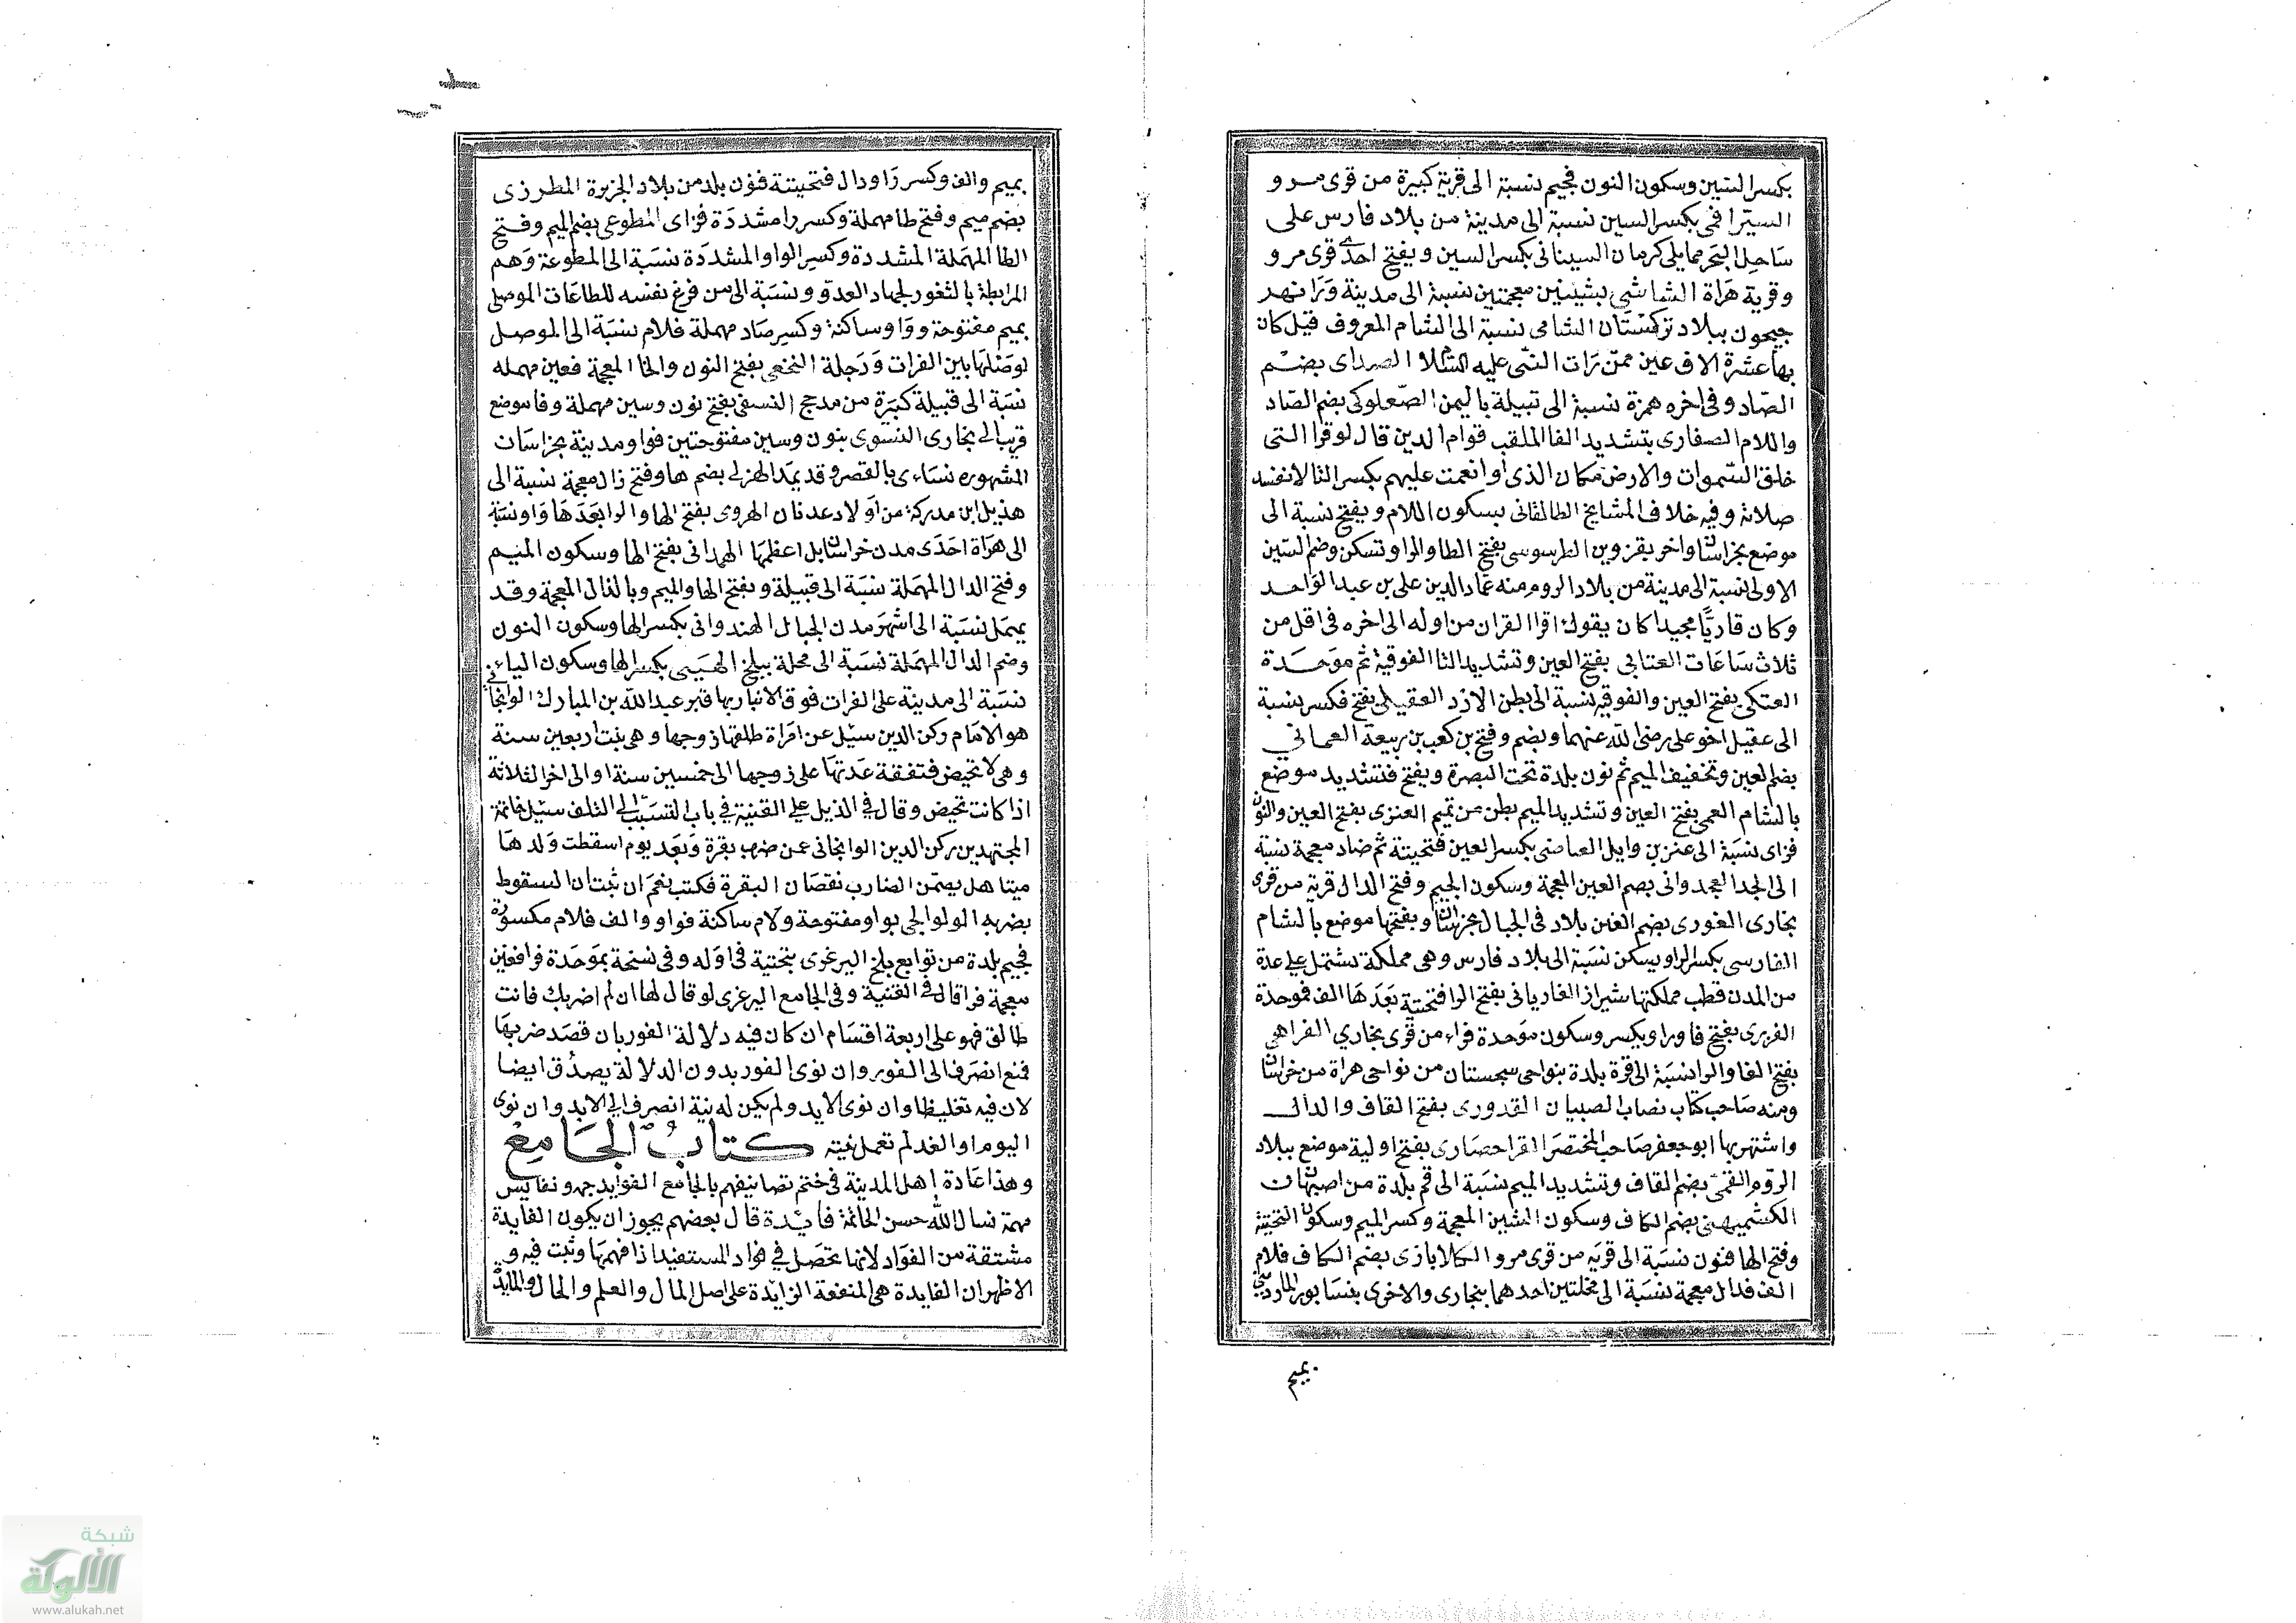 بكسر السين وسكون النون فجيم نسبة الى قرية كبيرة من قرى مرو
السيرافي بكسر السين نسبة الى مدينة من بلاد فارس على
ساحل البحر مما يلى كرمان السينانى بكسر السين ويفتح احدى قرى مرو
وقرية هراة الشاشي بشينين معجمتين نسبة الى مدينة ورا نهر
جيحون ببلاد تركستان الشامى نسبة الى الشام المعروف قيل كان
بها عشرة الاف عين ممن رات النبى عليه السلام الصداى بضم
الصاد وفى اخره همزة نسبة الى قبيلة باليمن الصعلوكى بضم الصاد
واللام الصفارى بتشديد الفا الملقب قوام الدين قال لو قرا التى
خلق السموات والارض مكان الذى او انعمت عليهم بكسر التا لا تفسد
صلاته وفيه خلاف المشايخ الطالقانى بسكون اللام ويفتح نسبة الى
موضع بخراسان واخر بقزوين الطرسوسى بفتح الطا والرا وتسكن وضم السين
الاولى نسبة الى مدينة من بلاد الروم ومنه عماد الدين على بن عبد الواحد
وكان قاريًا مجيدا كان يقول اقرا القران من اوله الى اخره فى اقل من
ثلاث ساعات العتابى بفتح العين وتشديد التا الفوقية ثم موحدة
العتكى بفتح العين والفوقية نسبة الى بطن الازد العقيلى بفتح فكسر نسبة
الى عقيل اخو على رضى الله عنهما وبضم وفتح بن كعب بن ربيعة العمانى
بضم العين وتخفيف الميم ثم نون بلدة تحت البصرة ويفتح فتشديد موضع
بالشام العمى بفتح العين وتشديد الميم بطن من تميم العنزى بفتح العين والنون
فزاى نسبة الى عنز بن وايل العياضى بكسر العين فتحتية ثم ضاد معجمة نسبة
الى الجد الغجدوانى بضم العين المعجمة وسكون الجيم وفتح الدال قرية من قرى
بخارى الغورى بضم الغين بلاد فى الجبال بخراسان وبفتحها موضع بالشام
الفارسى بكسر الرا ويسكن نسبة الى بلاد فارس وهى مملكة تشتمل على عدة
من المدن قطب مملكتها شيراز الفاريابى بفتح الرا فتحتية بعدها الف فموحدة
الفربرى بفتح فا ورا ويكسر وسكون موحدة فراء من قرى بخاري الفراهي
بفتح الفا والرا نسبة الى قرة بلدة بنواحى سجستان من نواحى هراة من خراسان
ومنه صاحب كتاب نصاب الصبيان القدورى بفتح القاف والدال
واشتهر بها ابو جعفر صاحب المختصر القراحصارى بفتح اولية موضع ببلاد
الروم القمى بضم القاف وتشديد الميم نسبة الى قم بلدة من اصبهان
الكشميهنى بضم الكاف وسكون الشين المعجمة وكسر الميم وسكون التحتية
وفتح الها فنون نسبة الى قرية من قرى مرو الكلاباذى بضم الكاف فلام
الف فدال معجمة نسبة الى محلتين احدهما ببخارى والاخرى بنسابور الماردينى
بميم
بميم والف وكسر را ودال فتحيتة فنون بلد من بلاد الجزيرة المطرزى
بضم ميم وفتح طا مهملة وكسر را مشددة فزاى المطوعى بضم الميم وفتح
الطا المهملة المشددة وكسر الواو المشددة نسبة الى المطوعة وهم
المرابطة بالثغور لجهاد العدو ونسبة الى من فرغ نفسه للطاعات الموصلى
بميم مفتوحة وواو ساكنة وكسر صاد مهملة فلام نسبة الى الموصل
لوصلها بين الفرات ودجلة النخعى بفتح النون والخا المعجمة فعين مهمله
نسبة الى قبيلة كبيرة من مدحج النسفى بفتح نون وسين مهملة وفا موضع
قريب الى بخارى النسوى بنون وسين مفتوحتين فواو مدينة بخراسان
المشهوره نساءى بالقصر وقد يمد الهزلى بضم ها وفتح ذال معجمة نسبة الى
هذيل ابن مدركة من اولاد عدنان الهروى بفتح الها والرا بعدها واو نسبة
الى هراة احدى مدن خراسان بل اعظمها الهمدانى بفتح الها وسكون الميم
وفتح الدال المهملة نسبة الى قبيلة وبفتح الها والميم وبالذال المعجمة وقد
يهمل نسبة الى اشهر مدن الجبال الهندوانى بكسر الها وسكون النون
وضم الدال المهملة نسبة الى محلة ببلخ الهيتى بكسر الها وسكون الياء
نسبة الى مدينة على الفرات فوق الانبار بها قبر عبد الله بن المبارك الوانجانى
هو الامام ركن الدين سئل عن امراة طلقها زوجها وهى بنت اربعين سنة
وهى لا تحيض فتفقة عدتها على زوجها الى خمسين سنة او الى اخر الثلاثة
اذا كانت تحيض وقال في الذيل على القنية في باب التسبب الى التلف سئل خاتمة
المجتهدين ركن الدين الوانجانى عمن ضرب بقرة وبعد يوم اسقطت ولدها
ميتا هل يضمن الضارب نقصان البقرة فكتب نعم ان ثبت ان السقوط
بضربه الولوالجى بواو مفتوحة ولام ساكنة فواو والف فلام مكسورة
فجيم بلدة من توابع بلخ اليرغرى بتحتية فى اوله وفى نسخة بموحدة فرا فغين
معجمة فرا قال في القنية وفى الجامع اليرغرى لو قال لها ان لم اضربك فانت
طالق فهو على اربعة اقسام ان كان فيه دلالة الفور بان قصد ضربها
فمنع انصرف الى الفور وان نوى الفور بدون الدلالة يصدق ايضا
لان فيه تغليظا وان نوى الابد ولم يكن له نية انصرف الى الابد وان نوى
اليوم او الغد لم تعمل نيته كتاب الجامع
وهذا عادة اهل المدينة فى ختم تصانيفهم بالجامع الفوايد جمه ونفايس
مهمة نسال الله حسن الخاتمة فايدة قال بعضهم يجوز ان يكون الفايدة
مشتقة من الفواد لانها تحصل في فواد المستفيد اذا فهمها وثبت فيه و
الاظهر ان الفايدة هى المنفعة الزايدة على اصل المال والعلم والحال والمايدة
شبكة
الألوكة
www.alukah.net